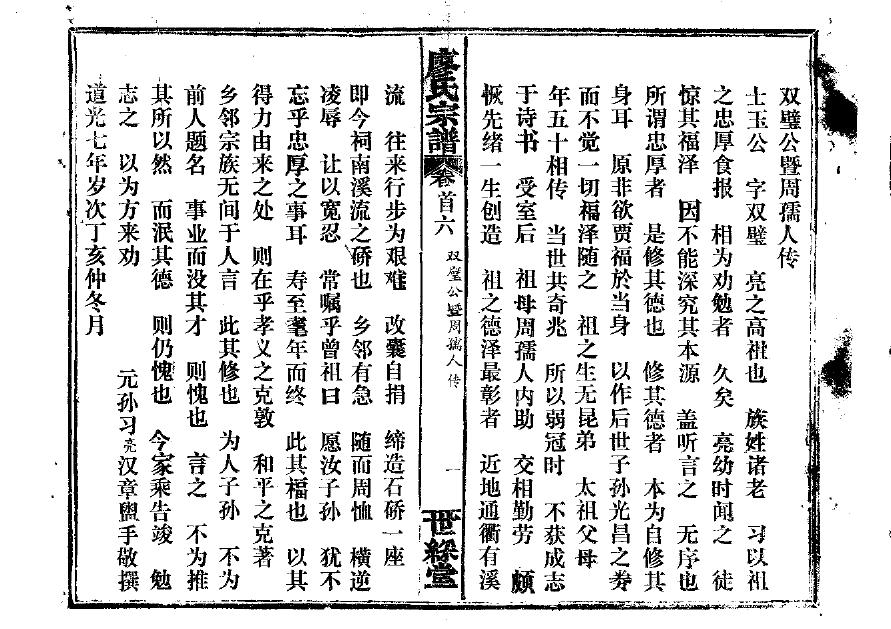 双璧公暨周孺人传
士玉公 字双璧 亮之高祖也 族姓诸老 习以祖
之忠厚食报 相为劝勉者 久矣 亮幼时闻之 徒
惊其福泽 因不能深究其本源 盖听言之 无序也
所谓忠厚者 是修其德也 修其德者 本为自修其
身耳 原非欲贾福於当身 以作后世子孙光昌之券
而不觉一切福泽随之 祖之生无昆弟 太祖父母
年五十相传 当世共奇兆 所以弱冠时 不获成志
于诗书 受室后 祖母周孺人内助 交相勤劳 颇
恢先绪一生创造 祖之德泽最彰者 近地通衢有溪
廖氏宗譜 卷首六 双璧公暨周孺人传 一 世綵堂
流 往来行步为艰难 改囊自捐 缔造石硚一座
即今祠南溪流之硚也 乡邻有急 随而周恤 横逆
凌辱 让以宽忍 常嘱乎曾祖曰 愿汝子孙 犹不
忘乎忠厚之事耳 寿至耄年而终 此其福也 以其
得力由来之处 则在乎孝义之克敦 和平之克著
乡邻宗族无间于人言 此其修也 为人子孙 不为
前人题名 事业而没其才 则愧也 言之 不为推
其所以然 而泯其德 则仍愧也 今家乘告竣 勉
志之 以为方来劝 元孙习亮汉章盥手敬撰
道光七年岁次丁亥仲冬月